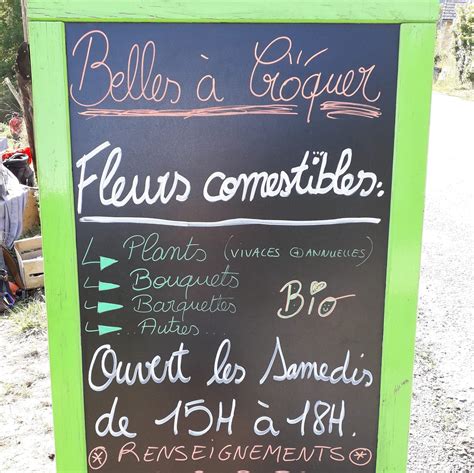 Belles à Croquer
Fleurs comestibles:
Plants (VIVACES + ANNUELLES)
Bouquets
Barquettes
...Autres...
Bio
Ouvert les Samedis
de 15H à 18H.
RENSEIGNEMENTS